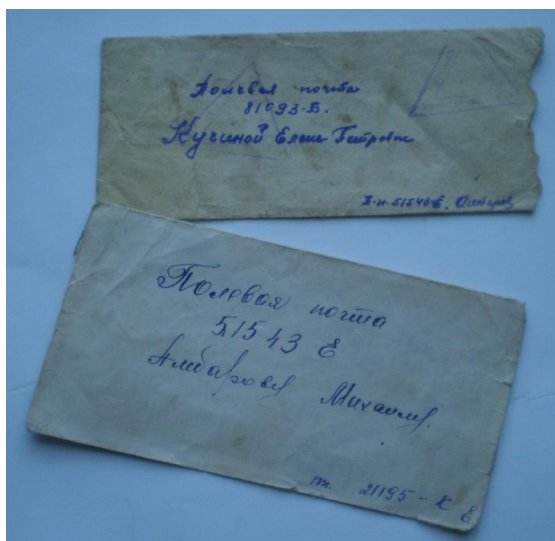 Полевая почта
81093-Б.
Кучиной Елене Петровне
П-п-51543-Е, Амбаров
Полевая почта
51543 Е
Амбарову Михаилу.
пп. 21195-К
Е